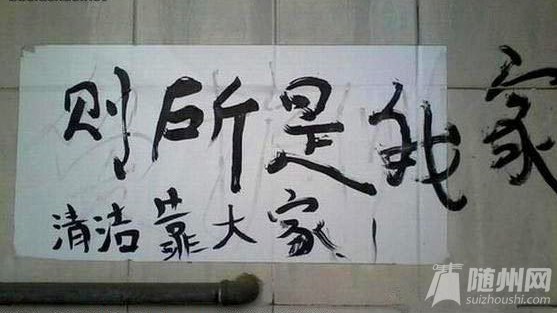 则所是我家
清洁靠大家！
随州网
suizhoushi.com